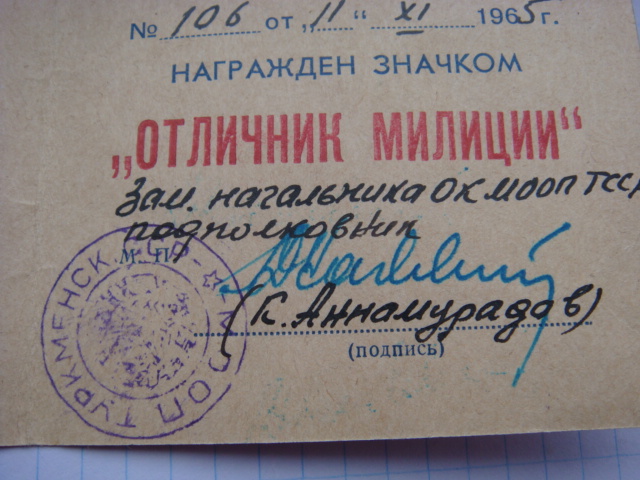 № 106 от „11“ XI 1965 г.
НАГРАЖДЕН ЗНАЧКОМ
„ОТЛИЧНИК МИЛИЦИИ“
Зам. начальника ОК МООП ТССР
подполковник
М. П.
(К. Аннамурадов)
(подпись)
МООП ТУРКМЕНСК. ССР